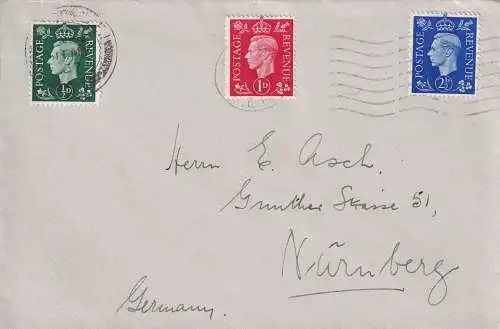 POSTAGE REVENUE ½D
POSTAGE REVENUE 1D
POSTAGE REVENUE 2½D
Herrn E. Asch.
Gunther Strasse 51,
Nürnberg
Germany.